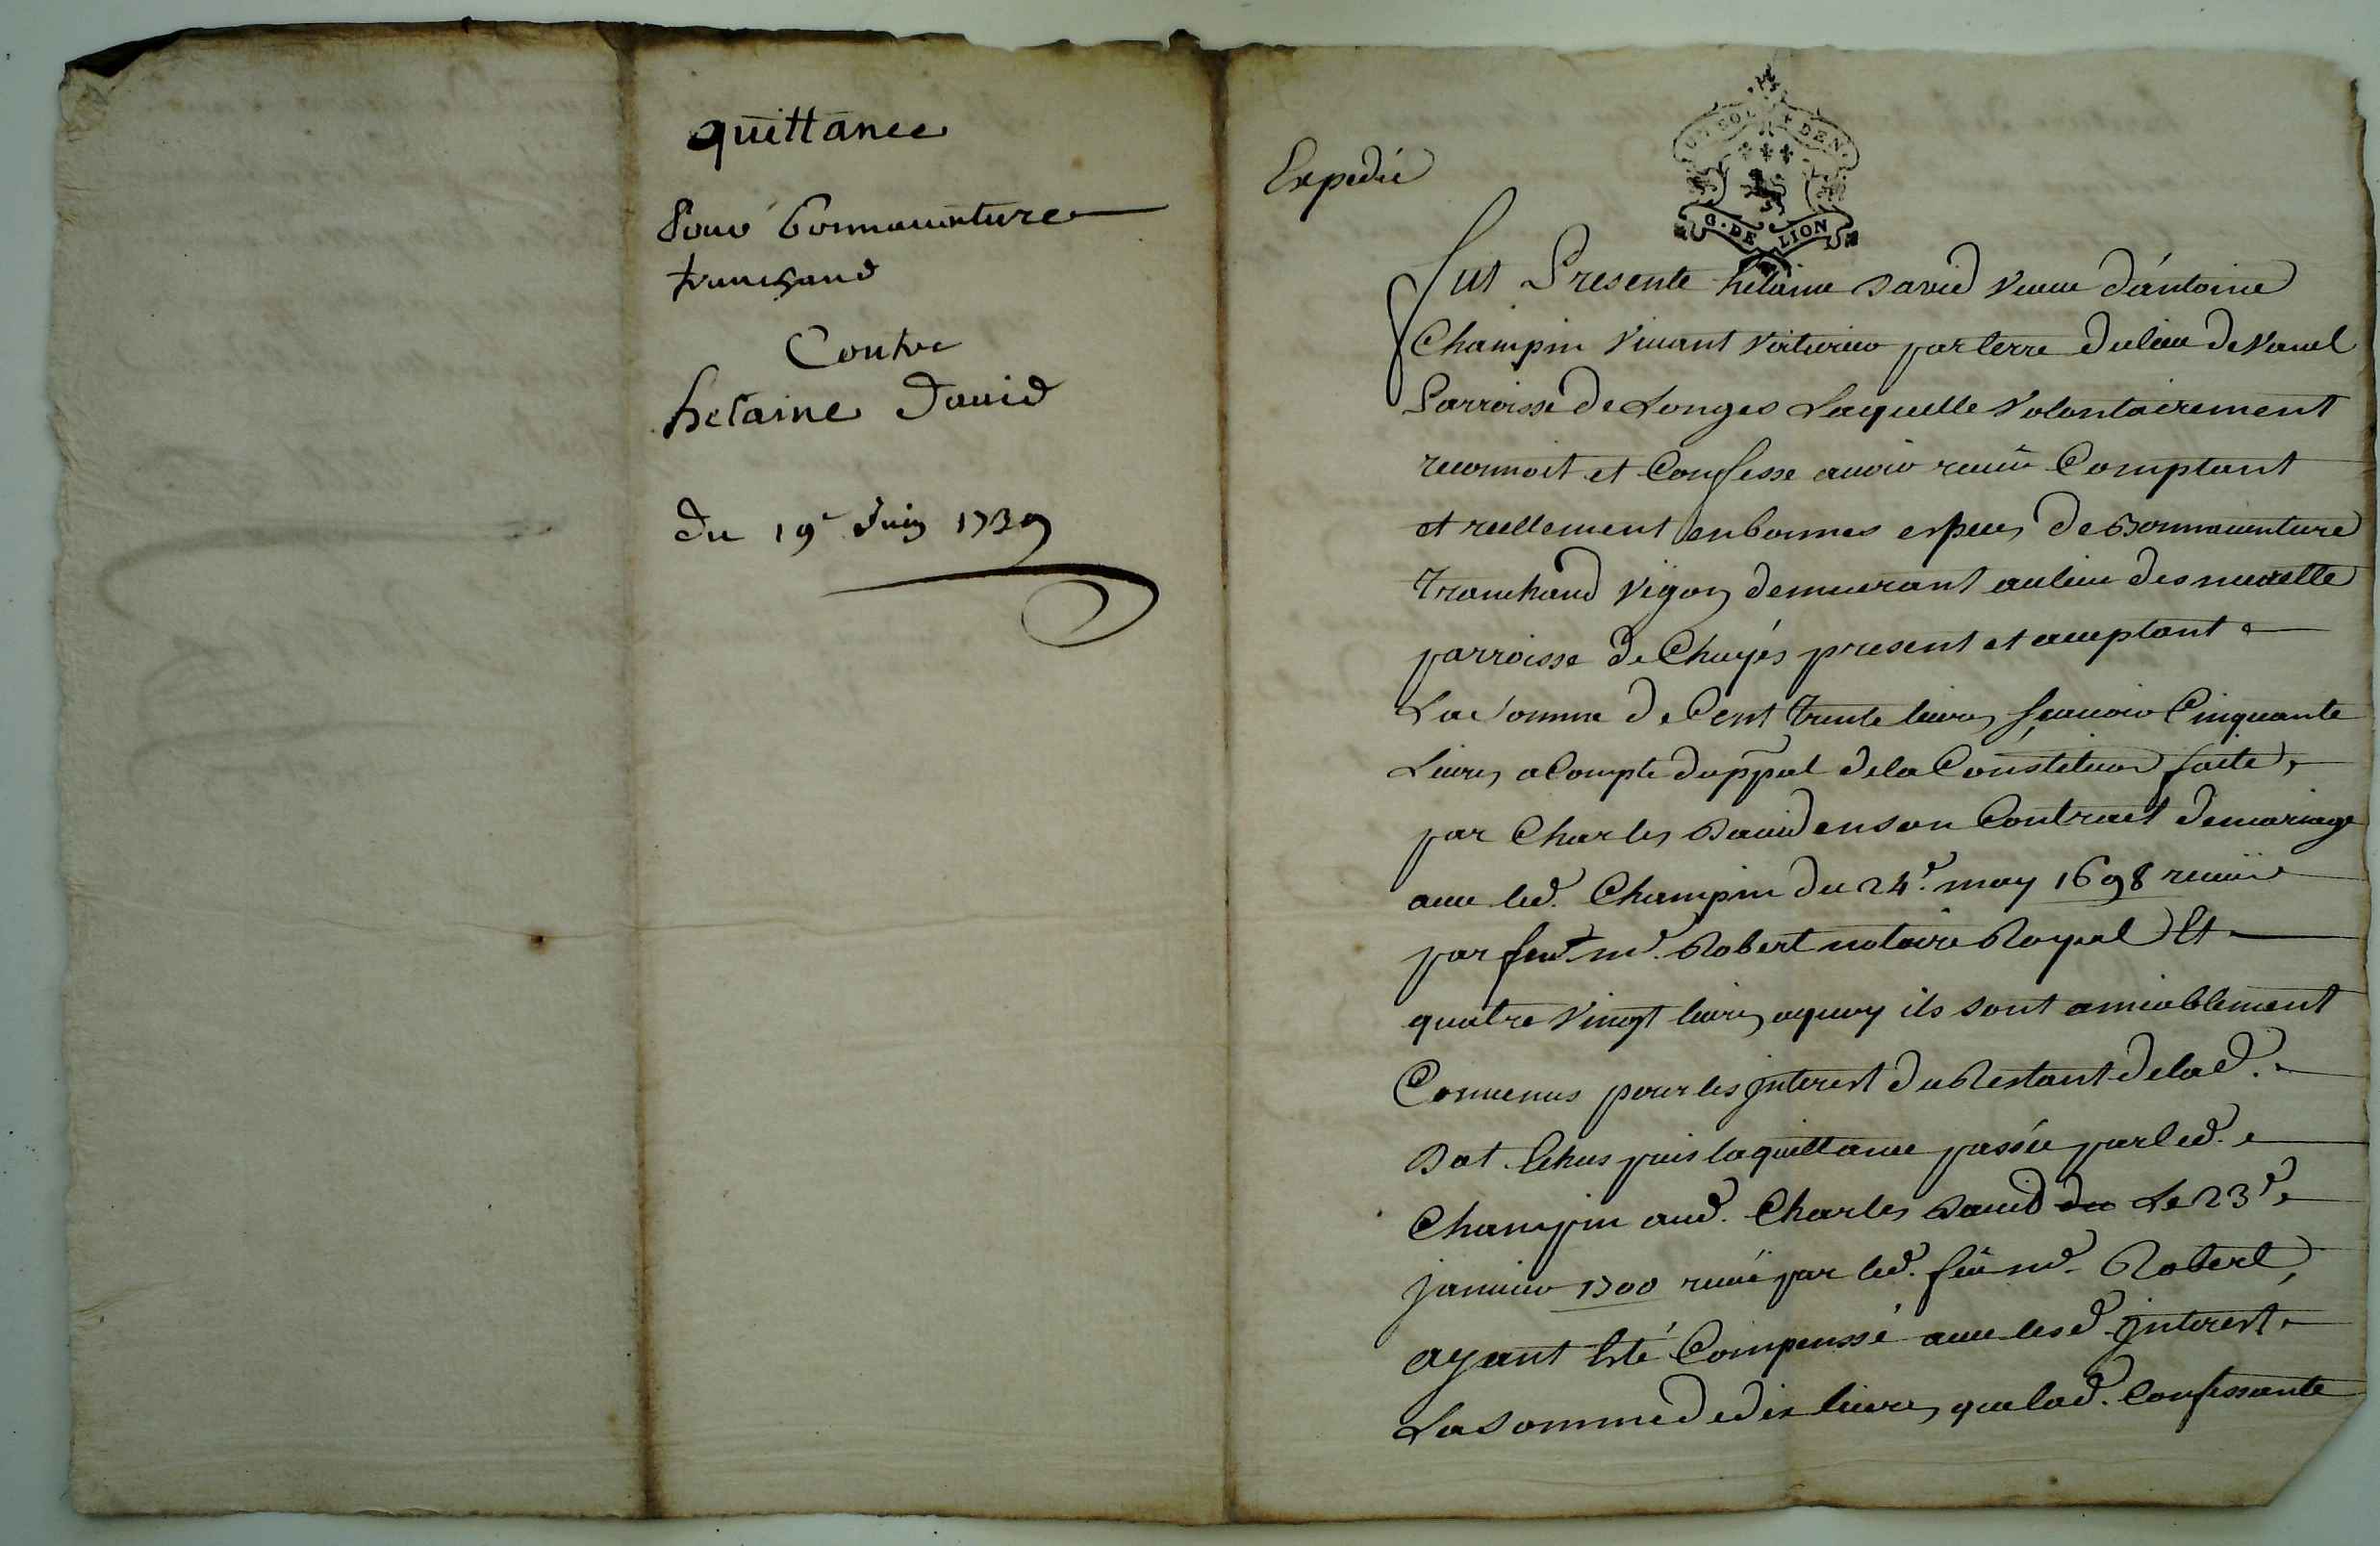 quittance
Pour bonnauenture
tranchand
Contre
helaine dauid
du 19e Juin 1739
Expedié
UN SOL + DEN
G. DE LION
Fut Presente helaine david veuue d'antoine
Champin viuant voiturier par terre du lieu de vanel
Parroisse de Longes Laquelle volontairement
reconnoit et Confesse auoir receu Comptant
et reellement en bonnes especes de Bonnauenture
Tranchand vigon demeurant au lieu des
parroisse de Chuyés present et acceptant
La somme de Cent trente liures sçauoir Cinquante
Liures a Compte du ppal de la Constitution faite
par Charles Dauid en son Contract de mariage
auec led. Champin du 24e may 1698 receu
par feu me. Robert notaire Royal Et
quatre vingt liures a quoy ils sont amiablement
Conuenus pour les Interest du Restant de lad.
Dot Echus puis la quittance passée par led.
Champin aud. Charles Dauid du Le 23e
januier 1700 receue par led. feu me. Robert
ayant Eté Compenssé auec lesd. Interest
La somme de dix liures que lad. Confessante